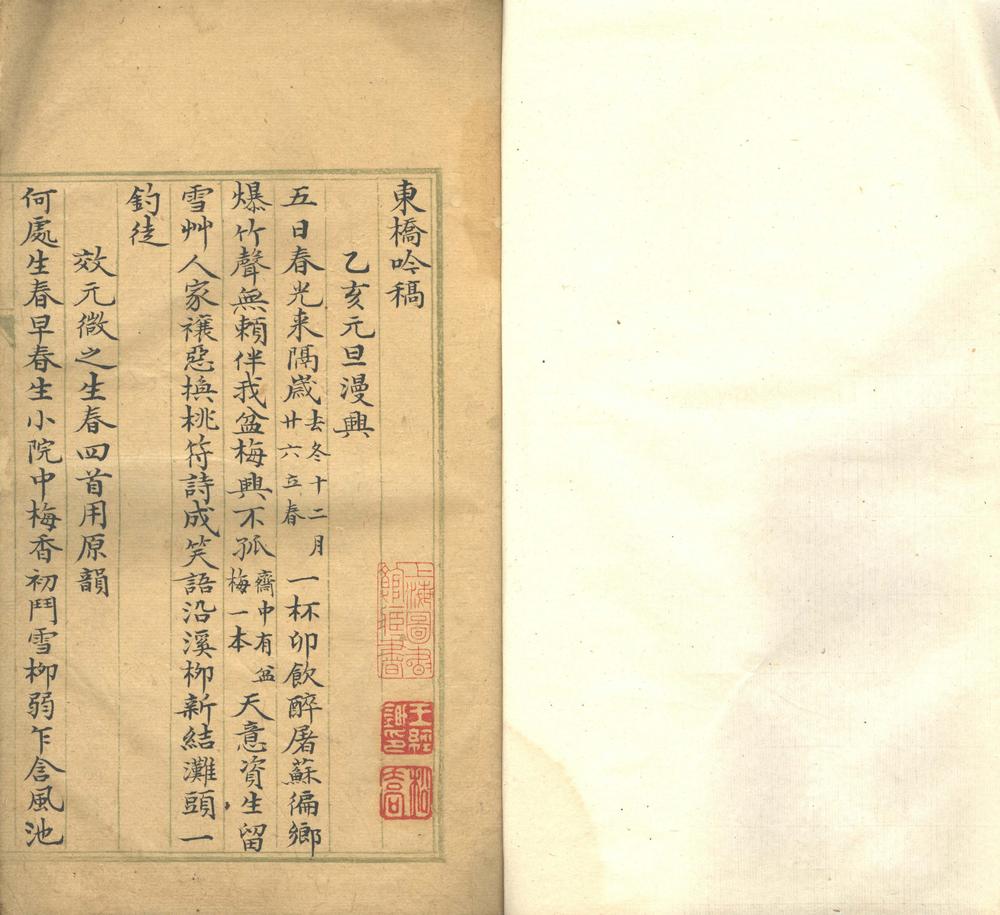 東橋吟稿
乙亥元旦漫興
五日春光来隔歲去冬十二月廿六立春一杯卯飲醉屠蘇徧鄉
爆竹聲無賴伴我盆梅興不孤齋中有盆梅一本天意資生留
雪艸人家禳惡換桃符詩成笑語沿溪栁新結灘頭一
釣徒
效元微之生春四首用原韻
何處生春早春生小院中梅香初鬥雪栁弱乍含風池
上海圖書館藏書